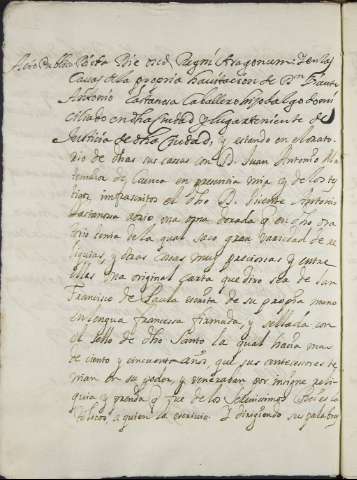 Acto Publico Dicto Die et ord Regni Aragonum: en las
Casas de la propria havitacion de Dn Vicente
Antonio Castanesa Caballero hijodalgo domi
ciliado en dha Ciudad y lugarteniente de
Justicia de dha Ciudad, y estando en el orato
rio de dhas sus casas con D. Juan Antonio
de Cuenca en presencia mia y de los tes
tigos infrascritos el dho D. Vicente Antonio
Castanesa una dorada q en
de la qual saco gran variedad de re
liquias, y otras cosas muy preciosas y entre
ellas una original carta que dixo ser de San
Francisco de Paula escrita de su propria mano
en lengua francesa firmada y sellada con
el sello de dho Santo la qual hacia mas
de ciento y cincuenta años que sus antecesores te
nian en su poder y veneraban por insigne reli
quia y prenda q fue de los Serenissimos Reies Ca
tolicos a quien la escrivio. Y dirigiendo sus palabras